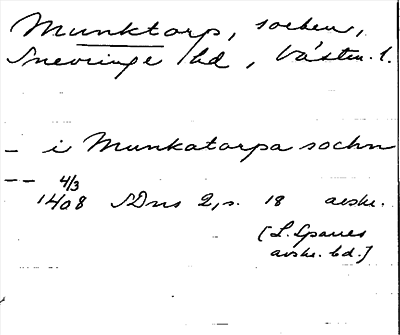 Munktorp, socken,
Snevringe hd, Västm. l.
— i Munkatorpa sochn
— — 4/3
1408 SDns 2, s. 18 avskr.
[L. Sparres
avskr. bd.]